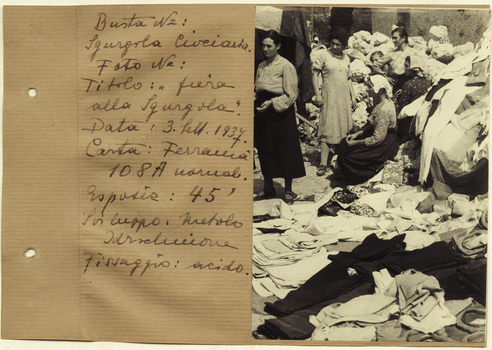 Busta No:
Sgurgola Ciociaria.
Foto No:
Titolo: „fiera
alla Sgurgola".
Data: 3. Sett. 1937.
Carta: Ferrania
108A normal.
Esposiz: 45'
Sviluppo: Metolo
Idrochinone
Fissaggio: acido.